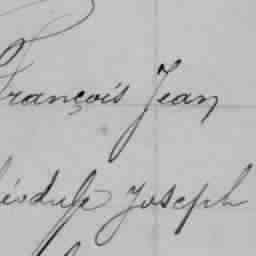 François Jean
Théodule Joseph